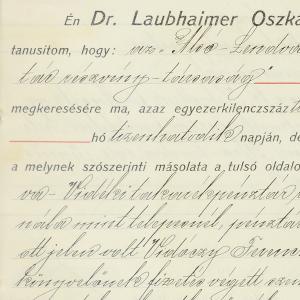 Én Dr. Laubhaimer Oszká
tanusítom, hogy: az "Alsó-Lendva
tár részvény-társaság"
megkeresésére ma, azaz egyezerkilenczszáz
hó tizenhatodik napján, de
a melynek szószerjnti másolata a tulsó oldalo
va-Vidéki takarékpénztár
nála mint telepesnél, pénztár
ott jelen volt Vidóczy Ferencz
könyvelőnek fizetés végett